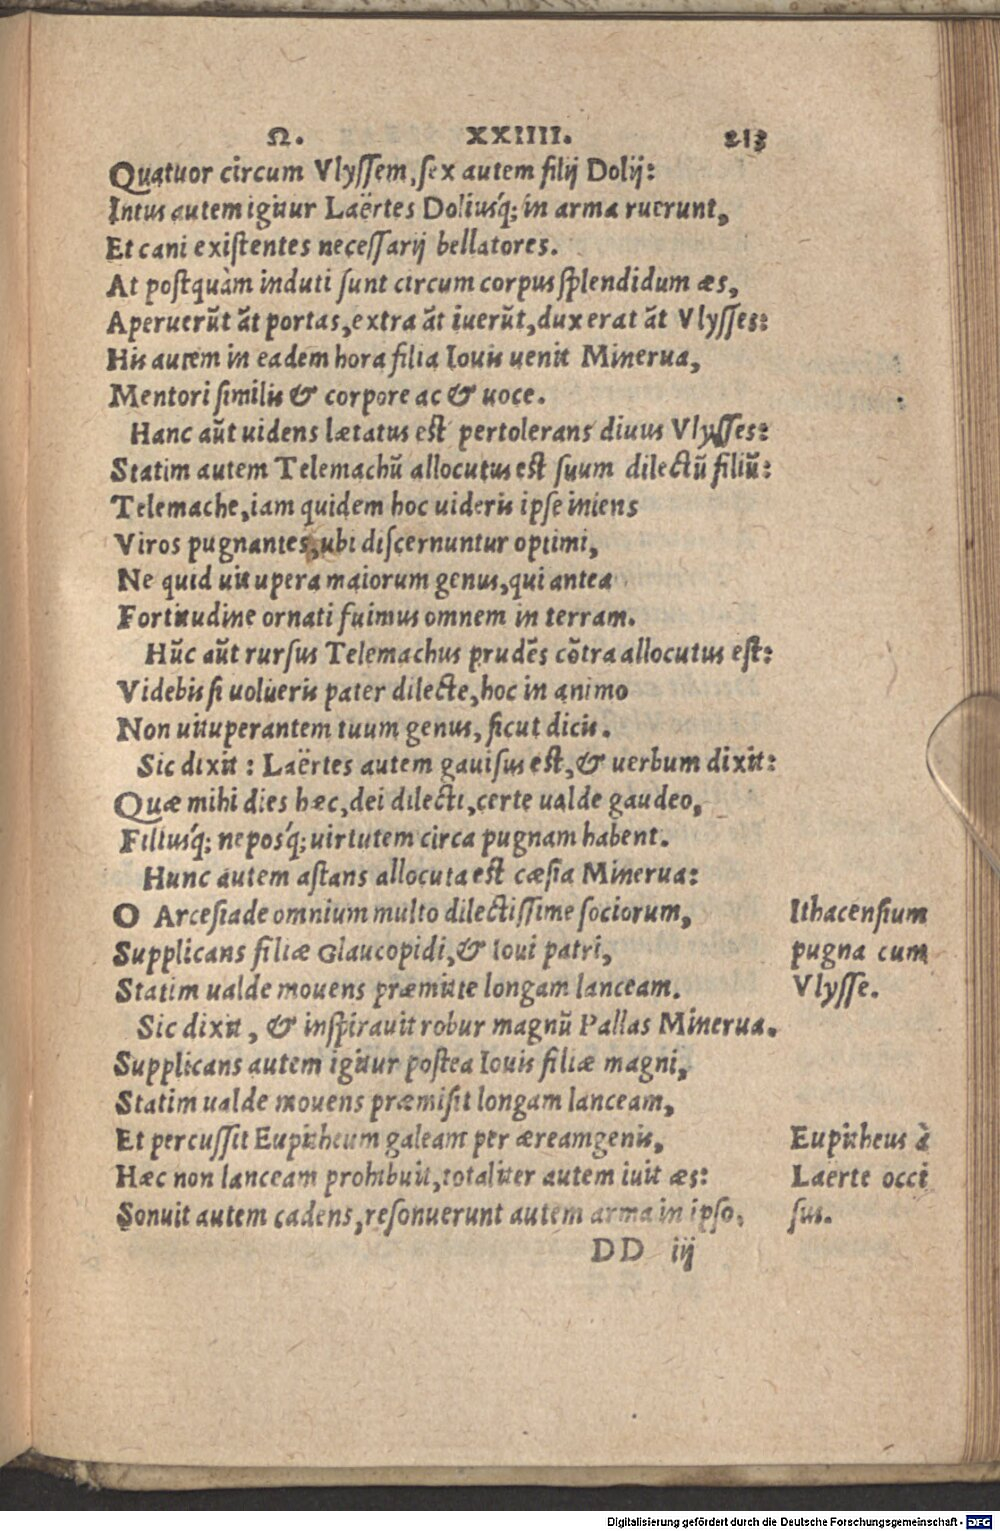 Ω. XXIIII. 213
Quatuor circum Vlyſſem, ſex autem filij Dolij:
Intus autem igitur Laërtes Doliusq́; in arma ruerunt,
Et cani existentes neceſſarij bellatores.
At postquàm induti ſunt circum corpus ſplendidum æs,
Aperuerũt āt portas, extra āt iuerũt, dux erat āt Vlyſſes:
His autem in eadem hora filia Iouis uenit Minerua,
Mentori ſimilis & corpore ac & uoce.
Hanc aũt uidens lætatus est pertolerans diuus Vlyſſes:
Statim autem Telemachũ allocutus est ſuum dilectũ filiũ:
Telemache, iam quidem hoc uideris ipſe iniens
Viros pugnantes, ubi diſcernuntur optimi,
Ne quid uitupera maiorum genus, qui antea
Fortitudine ornati fuimus omnem in terram.
Hũc aũt rurſus Telemachus prudẽs cõtra allocutus eſt:
Videbis ſi uolueris pater dilecte, hoc in animo
Non uituperantem tuum genus, ſicut dicis.
Sic dixit: Laërtes autem gauiſus eſt, & uerbum dixit:
Quæ mihi dies hæc, dei dilecti, certe ualde gaudeo,
Filiusq́; neposq́; uirtutem circa pugnam habent.
Hunc autem aſtans allocuta eſt cæſia Minerua:
O Arceſiade omnium multo dilectiſſime ſociorum,
Supplicans filiæ Glaucopidi, & Ioui patri,
Statim ualde mouens præmitte longam lanceam.
Sic dixit, & inſpirauit robur magnũ Pallas Minerua.
Supplicans autem igitur poſtea Iouis filiæ magni,
Statim ualde mouens præmiſit longam lanceam,
Et percuſſit Eupitheum galeam per æream genis,
Hæc non lanceam prohibuit, totaliter autem iuit æs:
Sonuit autem cadens, reſonuerunt autem arma in ipſo.
DD iij
Ithacenſium
pugna cum
Vlyſſe.
Eupitheus à
Laërte occi
ſus.
Digitalisierung gefördert durch die Deutsche Forschungsgemeinschaft - DFG